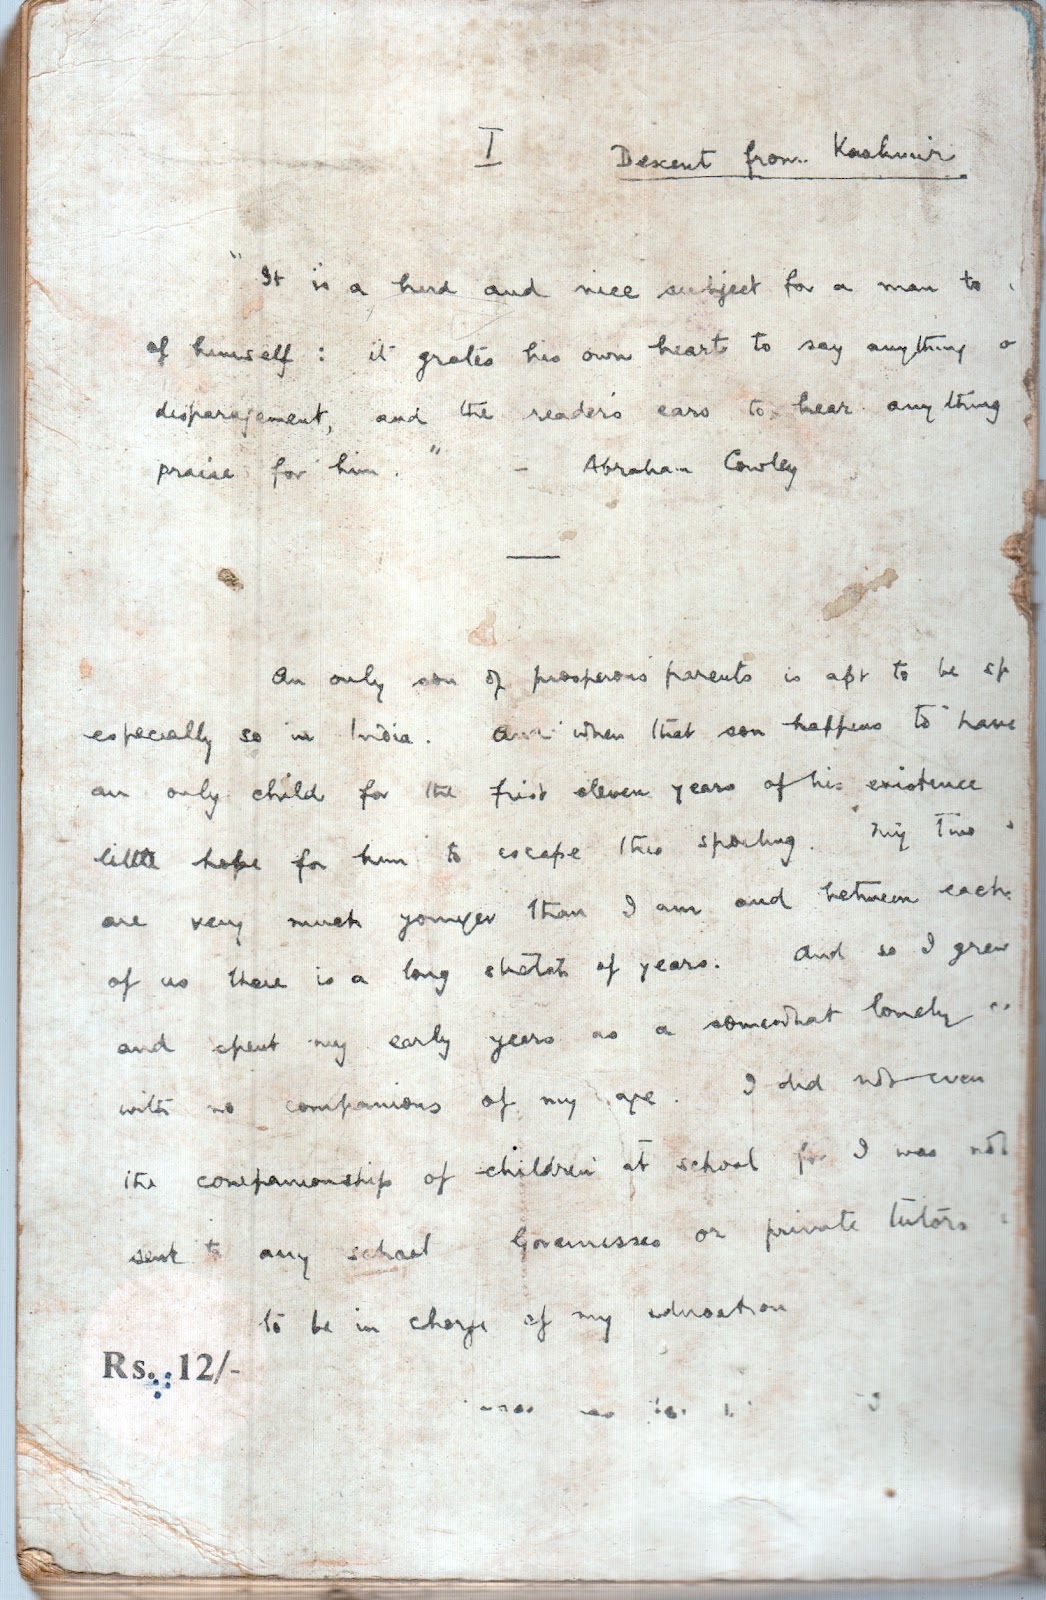 I Descent from Kashmir
"It is a hard and nice subject for a man to
of himself : it grates his own heart to say anything o
disparagement, and the reader's ears to hear anything
praise for him." – Abraham Cowley
An only son of prosperous parents is apt to be sp
especially so in India. And when that son happens to have
an only child for the first eleven years of his existence
little hope for him to escape this spoiling. My two s
are very much younger than I am and between each
of us there is a long stretch of years. And so I grew
and spent my early years as a somewhat lonely
with no companions of my age. I did not even
the companionship of children at school for I was not
sent to any school Governesses or private tutors
to be in charge of my education
Rs. 12/-